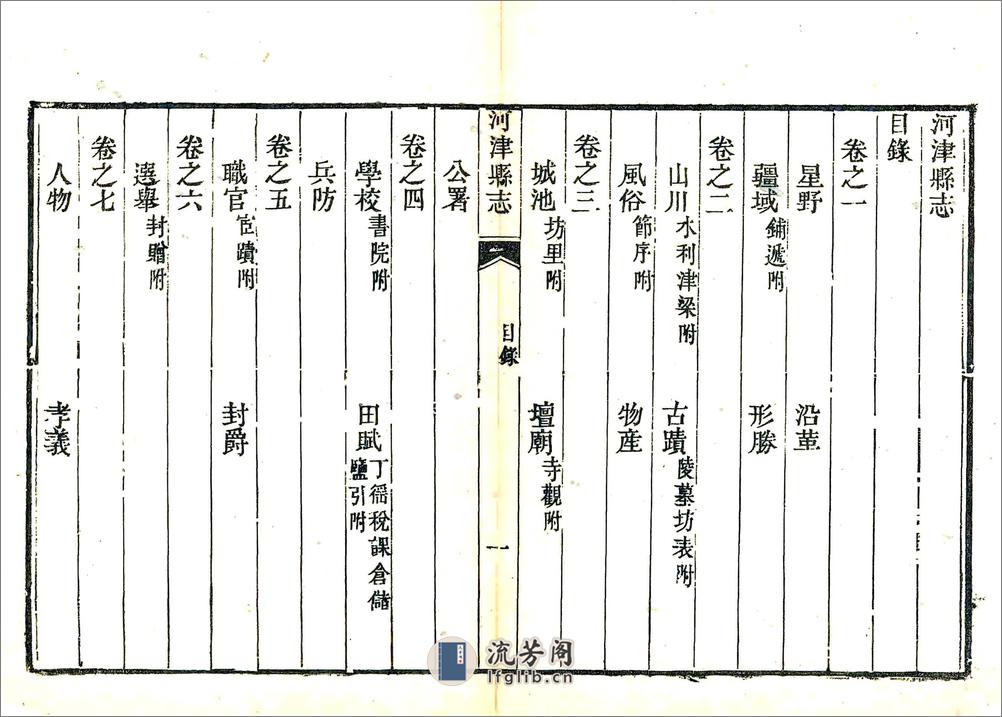 河津縣志
目錄
卷之一
星野 沿革
疆域 鋪遞附 形勝
卷之二
山川 水利津梁附 古蹟 陵墓坊表附
風俗 節序附 物産
卷之三
城池 坊里附 壇廟 寺觀附
河津縣志 目錄 一
公署
卷之四
學校 書院附 田賦 丁徭稅課倉儲鹽引附
兵防
卷之五
職官 宦蹟附 封爵
卷之六
選舉 封贈附
卷之七
人物 孝義
流芳阁
lfglib.cn